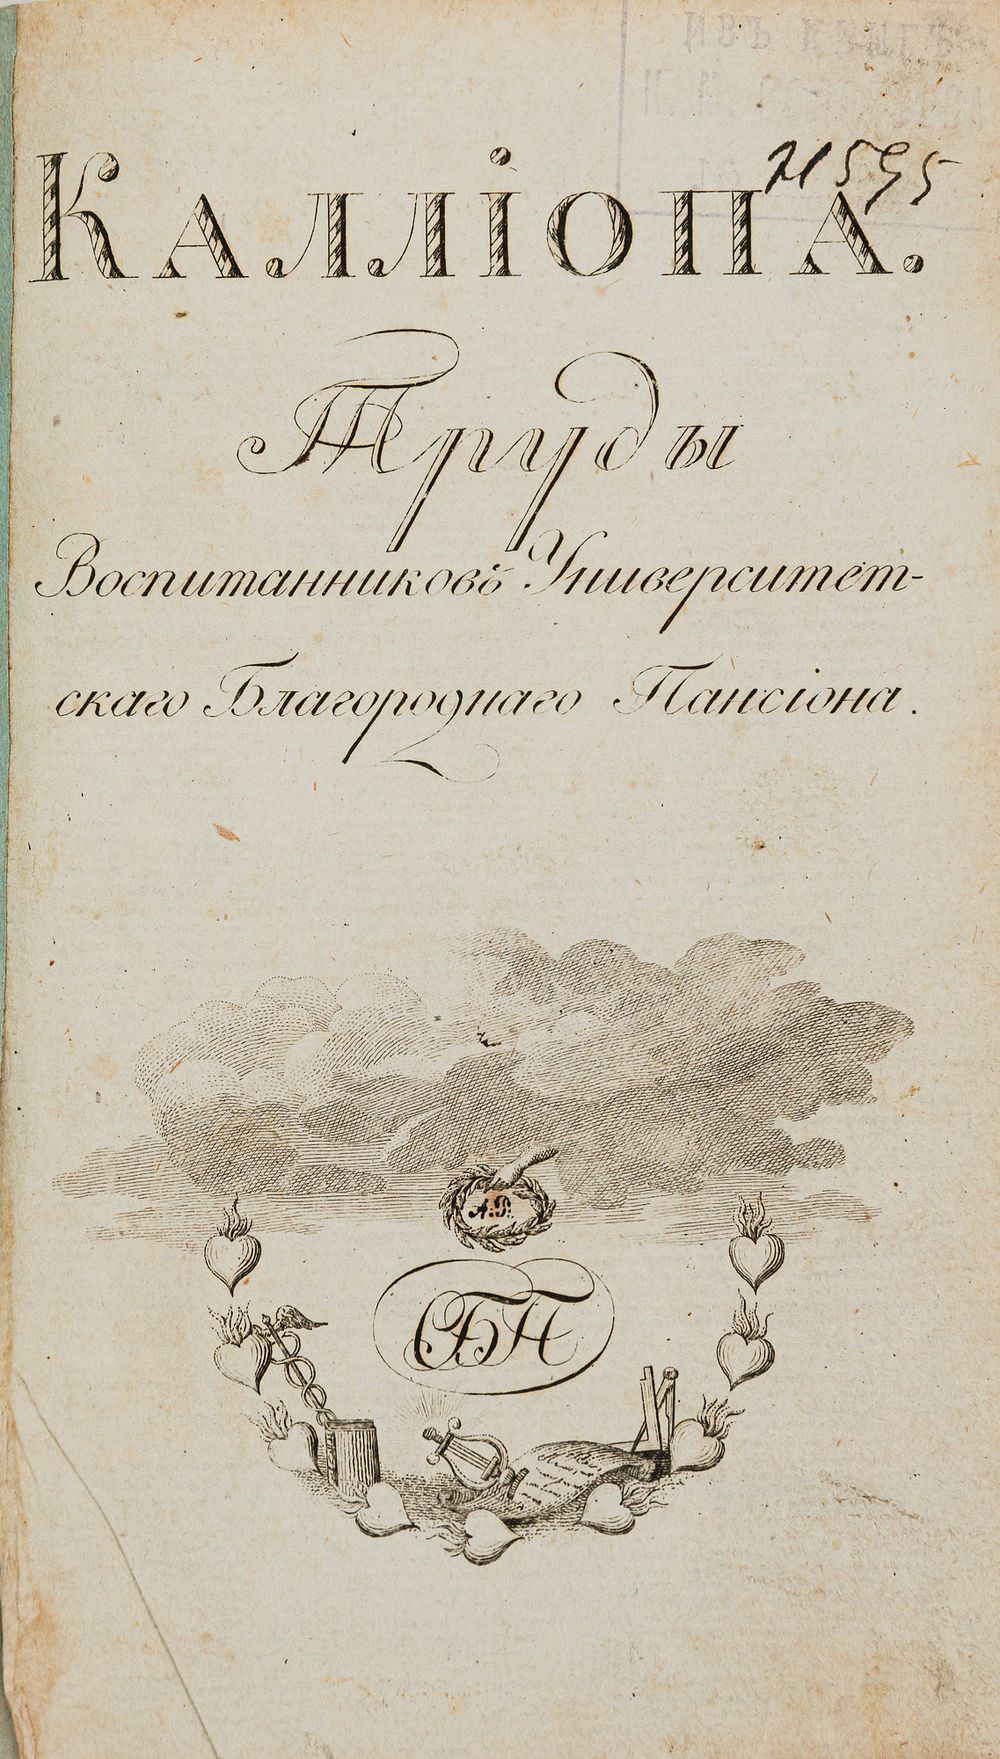 ИЗЪ КНИГЪ
Н595
Каллiопа.
Труды
Воспитанниковъ Университет-
скаго Благороднаго Пансiона.
БП